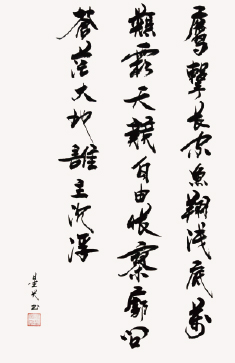 鹰擊长空魚翔浅底萬
類霜天競自由怅寥廓问
蒼茫大地誰主沉浮